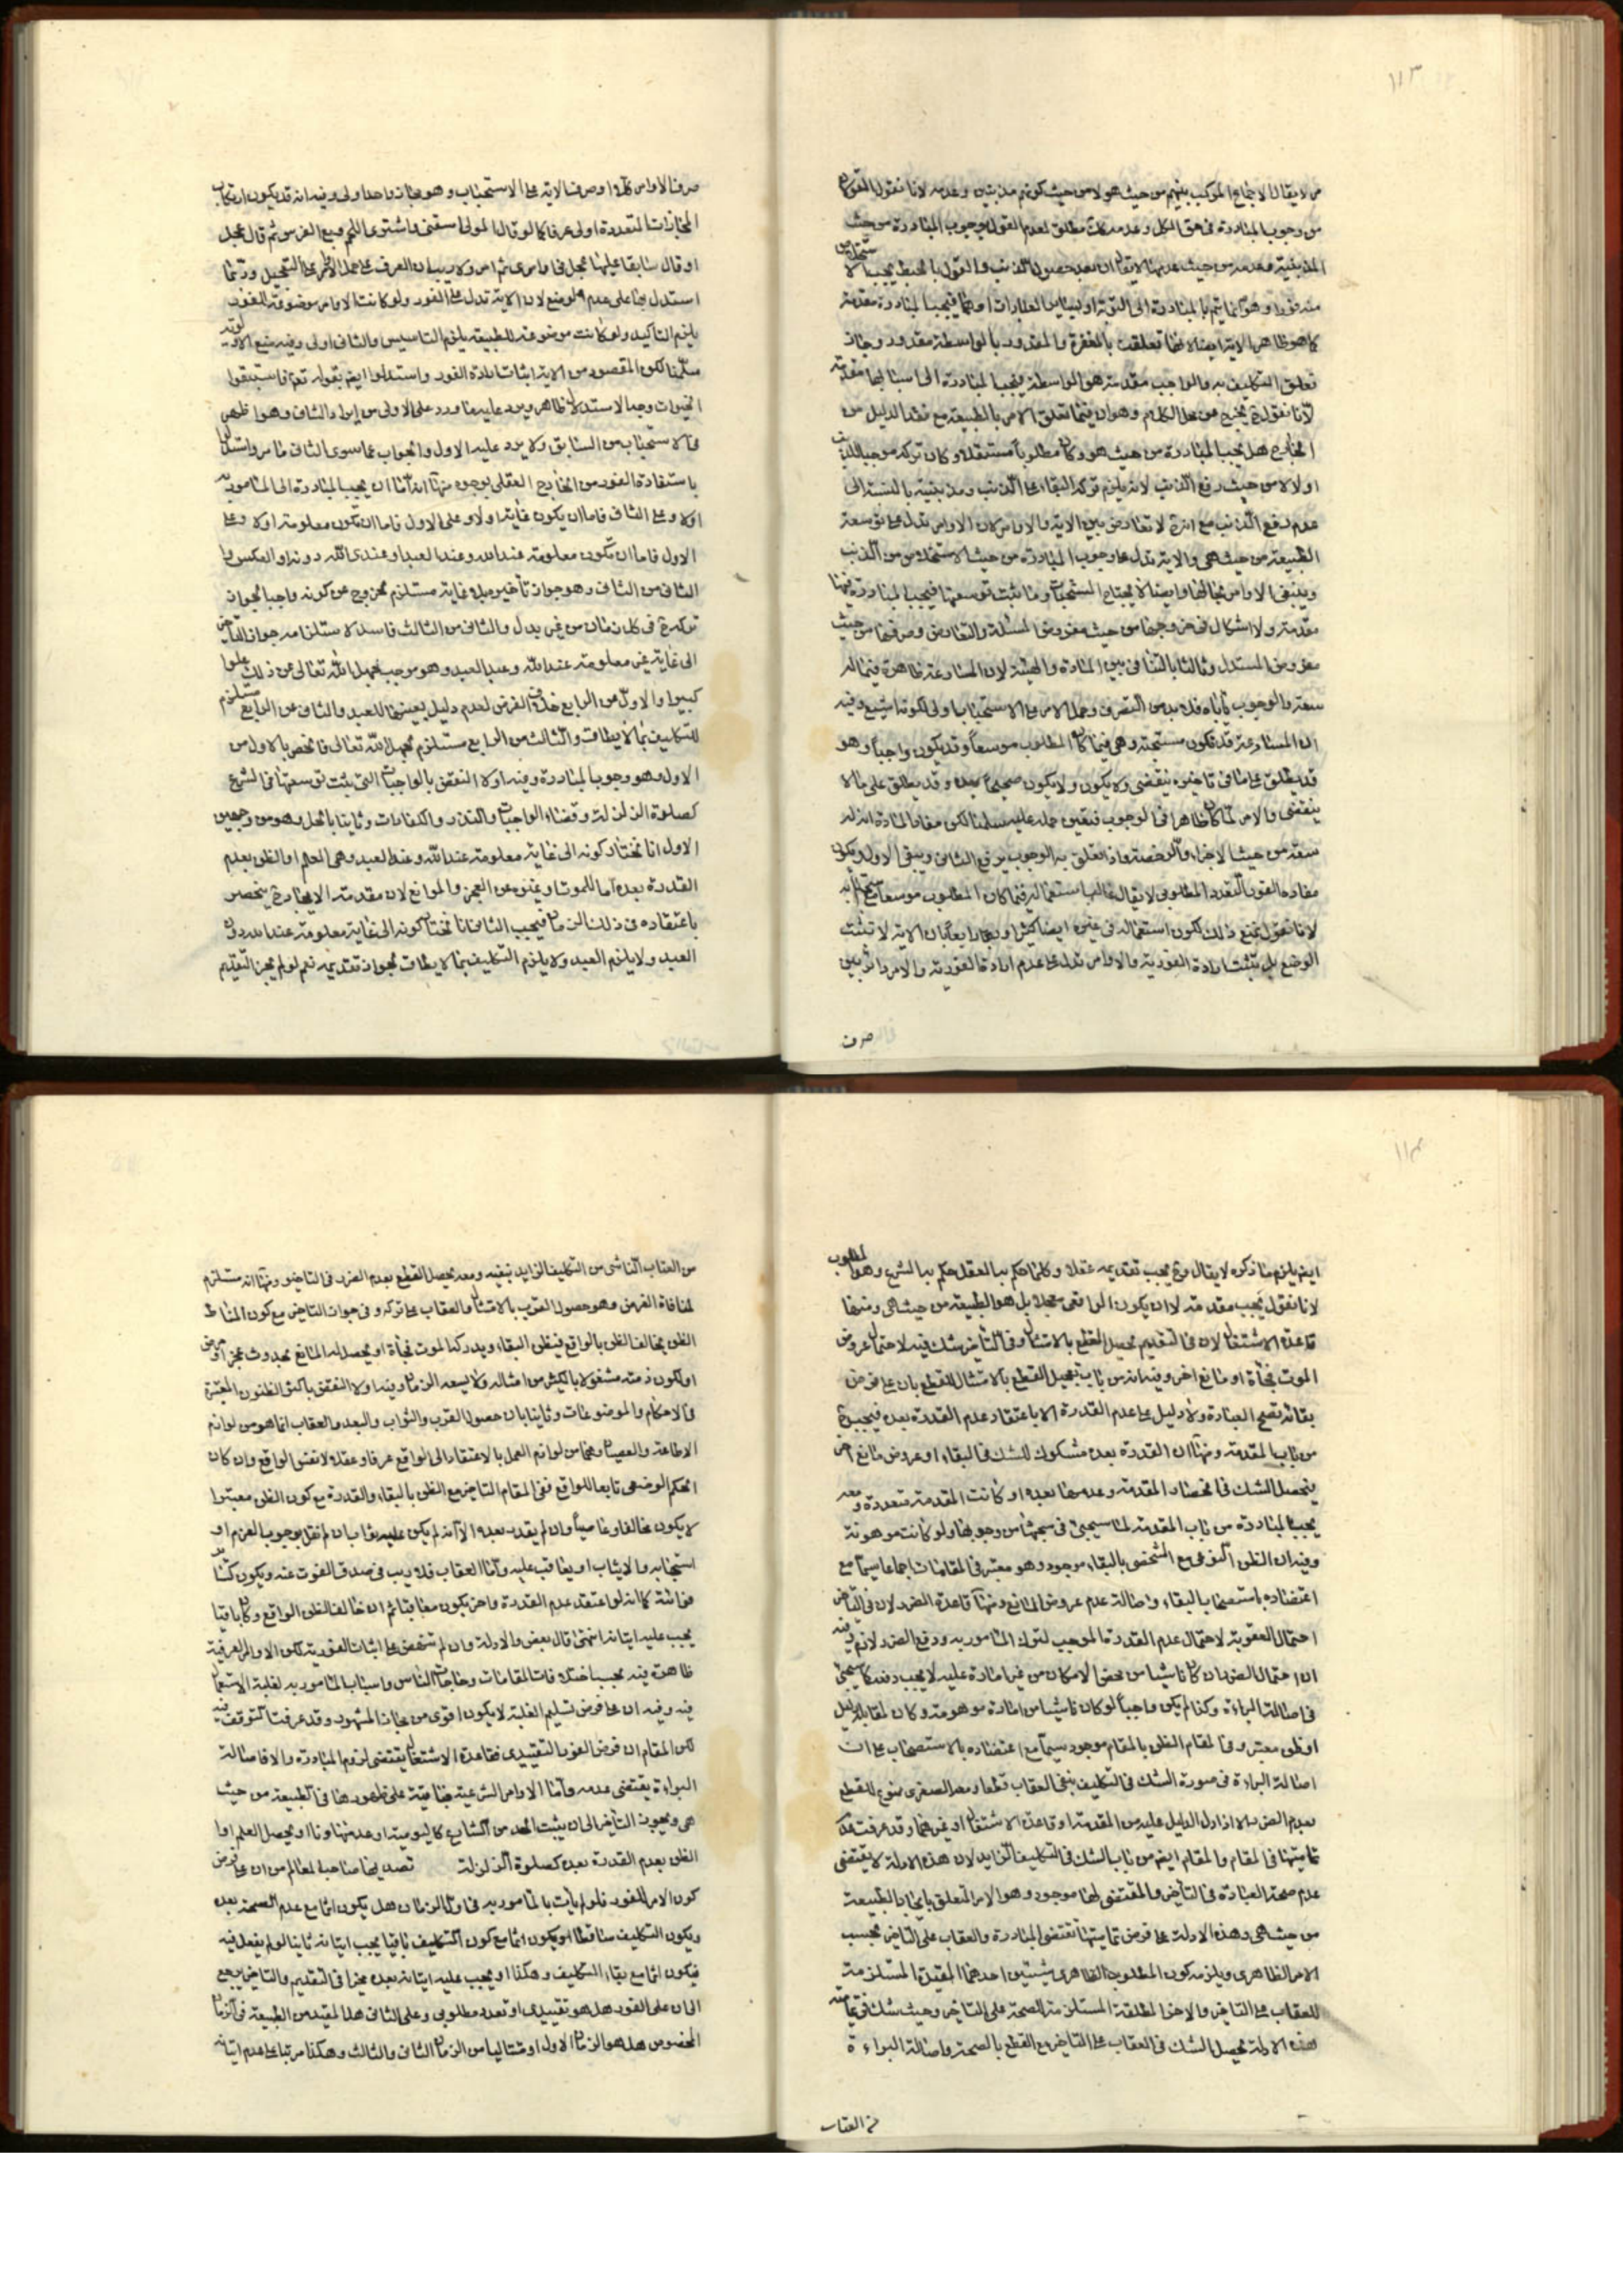 ١١٣
من لا يقال الاجماع المركب بينهم من حيث هو لا من حيث كونهم مذنبين وعدمه لانا نقول القول
من وجوب المبادرة فى حق الكل وعدمه مطلق لعدم القول بوجوب المبادرة من حيث
المذنبية وعدمه من حيث عدمها لا يقال ان بعد حصول الذنب والقول بالحبط يجب الاستخلاص
منه فورا وهو انما يتم بالمبادرة الى التوبة او بسائر العبادات او بهما فيجب المبادرة مقدمة
كما هو ظاهر الاية ايضا لانها تعلقت بالمغفرة والمقدور بالواسطة مقدور وجاز
تعلق التكليف به والواجب مقدمة هو الواسطة فيجب المبادرة الى اسبابها مقدمة
لانا نقول ح يخرج عن محل الكلام وهو ان فيما تعلق الامر بالطبيعة مع فقد الدليل من
الخارج هل يجب المبادرة من حيث هو وكان مطلوبا مستقلا وكان تركه موجبا للذنب
اولا لا من حيث رفع الذنب لانه يلزم تركه البقاء على الذنب ومذنبيته بالنسبة الى
عدم رفع الذنب مع انه ح لا تعارض بين الاية والاوامر لان الاوامر تدل على توسعة
الطبيعة من حيث هى والاية تدل على وجوب المبادرة من حيث الاستخلاص من الذنب
ويبقى الاوامر بحالها وايضا لا يحتاج المستحبات وما ثبت توسعتها فيجب المبادرة فيها
مقدمة ولا اشكال فى خروجها من حيث مفروض المسئلة والتعارض وصرفها من حيث
مفروض المستدل وثالثا بالتنافى بين المادة والهيئة لان المسارعة ظاهرة فيما له
سعة والوجوب ياباه فلا بد من التصرف وحمل الامر على الاستحباب اولى لكونه اشيع وفيه
ان المسارعة قد تكون مستحبة وهى فيما كان المطلوب موسعا وقد يكون واجبا وهو
قد يطلق على ما فى تاخيره ينقضى ولا يكون ولا يكون صحيحا بعده وقد يطلق على ما لا
ينقضى والامر لما كان ظاهرا فى الوجوب فيتعين حمله عليه سلمنا لكن مفاد المادة انه له
سعة من حيث الاجزاء والرخصة واذا تعلق به الوجوب يرفع الثانى ويبقى الاول ويكون
مفاده الفور التعدد المطلوبى لا يقال غالب استعماله فيما كان المطلوب موسعا
لانا نقول نمنع ذلك لكون استعماله فى غيره ايضا كثيرا ورابعا بان الاية لا تثبت
الوضع بل تثبت ارادة الفورية والاوامر تدل على عدم ارادة الفورية والامر دائر بين
صرف
صرف الاوامر كلها او صرف الاية على الاستحباب وهو مجاز واحد اولى وفيه انه قد يكون ارتكاب
المجازات المتعددة اولى عرفا كما لو قال المولى اسقنى واشترى اللحم وبع الفرس ثم قال عجل
او قال سابقا عليها عجل فى اوامرى ثم امر ولا ريب ان العرف على حمل الاوامر على التعجيل وربما
استدل بها على عدم الوضع لان الاية تدل على الفور ولو كانت الاوامر موضوعة للفور
يلزم التاكيد ولو كانت موضوعة للطبيعة يلزم التاسيس والثانى اولى وفيه منع الاولوية
سلمنا لكن المقصود من الاية اثبات ارادة الفور واستدلوا ايضا بقوله تعم فاستبقوا
الخيرات وجه الاستدلال ظاهر ويرد عليه ما ورد على الاولى من ايراد الثانى وهو اظهر
فى الاستحباب من السابق ولا يرد عليه الاول والجواب عما سوى الثانى ما مر واستدل
باستفادة الفور من الخارج العقلى بوجوه منها انه اما ان يجب المبادرة الى المامور به
اولا وعلى الثانى فاما ان يكون غاية اولا وعلى الاول فاما ان تكون معلومة اولا وعلى
الاول فاما ان تكون معلومة عند الله وعند العبد او عند الله دونه او العكس والاول
الثانى من الثانى وهو جواز تأخيره بلا غاية مستلزم لخروج عن كونه واجبا لجواز
تركه ح فى كل زمان من غير بدل والثانى من الثالث فاسد لاستلزامه جواز التأخير
الى غاية غير معلومة عند الله وعند العبد وهو موجب لجهل الله تعالى عن ذلك علوا
كبيرا والاول من الرابع خلاف الفرض لعدم دليل يعينها للعبد والثانى من الرابع مستلزم
للتكليف بما لا يطاق والثالث من الرابع مستلزم لجهل الله تعالى فانحصر بالاول من
الاول وهو وجوب المبادرة وفيه اولا النقض بالواجبات التى يثبت توسعتها فى الشرع
كصلوة الزلزلة وقضاء الواجبات والنذر والكفارات وثانيا بالحل وهو من وجهين
الاول انا نختار كونه الى غاية معلومة عند الله وعند العبد وهى العلم او الظن بعدم
القدرة بعده اما للموت او غيره من العجز والموانع لان مقدمته الايجاد ح ينحصر
باعتقاده فى ذلك الزمان فيجب الثانى انا نختار كونه الى غاية معلومة عند الله دون
العبد ولا يلزم العبد ولا يلزم التكليف بما لا يطاق لجواز تقديمه نعم لو لم يجز التقديم
١١٤
ايضا يلزم ما ذكره لا يقال وح يجب تقديمه عقلا وكلما حكم به العقل حكم به الشرع وهو المطلوب
لانا نقول يجب مقدمة لا ان يكون الواقعى معجلا بل هو الطبيعة من حيث هى ومنها
قاعدة الاشتغال لان فى التقديم يحصل القطع بالامتثال وفى التأخير شك فيه لاحتمال عروض
الموت فجأة او مانع اخر وفيه انه من باب تحصيل القطع بالامتثال للقطع بان على فرض
بقائه تصح العبادة ولا دليل على عدم القدرة الا باعتقاد عدم القدرة بعده فيجب ح
من باب المقدمة ومنها ان القدرة بعده مشكوك للشك فى البقاء او عروض مانع اخر
فيحصل الشك فى انحصار المقدمة وعدمها بعده او كانت المقدمة متعددة ومعه
يجب المبادرة من باب المقدمة لما سيجئ فى مبحثها من وجوبها ولو كانت موهومة
وفيه ان الظن النوعى مع الشخصى بالبقاء موجود وهو معتبر فى المقامات اجماعا سيما مع
اعتضاده باستصحاب البقاء واصالة عدم عروض المانع ومنها قاعدة الضرر لان فى التأخير
احتمال العقوبة لاحتمال عدم القدرة الموجب لترك المامور به ودفع الضرر لازم وفيه
ان احتمال الضرر ان كان ناشيا من محض الامكان من غير امارة عليه لا يجب دفعه كما سيجئ
فى اصالة البراءة وكذا لم يكن واجبا لو كان ناشيا من امارة موهومة وكان لمقابله دليل
او ظن معتبر وفى المقام الظن بالمقام موجود سيما مع اعتضاده بالاستصحاب على ان
اصالة البراءة فى صورة الشك فى التكليف ينفى العقاب قطعا ومعه الصغرى ممنوع للقطع
بعدم الضرر الا اذا دل الدليل عليه من المقدمة او قاعدة الاشتغال او غيرهما وقد عرفت عدم
تماميتها فى المقام والمقام ايضا من باب الشك فى التكليف الزايد لان هذه الادلة لا يقتضى
عدم صحة العبادة فى التأخير والمقتضى لها موجود وهو الامر المتعلق بايجاد الطبيعة
من حيث هى وهذه الادلة على فرض تماميتها تقتضى المبادرة والعقاب على التاخير بحسب
الامر الظاهرى ويلزمه كون المطلوب الظاهرى شيئين احدهما المقيدة المستلزمة
للعقاب على التاخير والاخر المطلقة المستلزمة للصحة على التاخير وحيث شك فى تمامية
هذه الادلة يحصل الشك فى العقاب على التاخير مع القطع بالصحة واصالة البراءة
من العقاب
من العقاب الناشى من التكليف الزايد ينفيه ومعه يحصل القطع بعدم الضرر فى التاخير ومنها انه مستلزم
لمنافاة الغرض وهو حصول القرب بالامتثال والعقاب على تركه وفى جواز التاخير مع كون المناط
الظن يخالف الظن بالواقع فيظن البقاء ويدركه الموت فجأة او يحصل له المانع بحدوث عجز او مرض
او لكون ذمته مشغولا بالكثير من امثاله ولا يسعه الزمان وفيه اولا النقض باكثر الظنون المعتبرة
فى الاحكام والموضوعات وثانيا بان حصول القرب والثواب والبعد والعقاب انما هو من لوازم
الاطاعة والعصيان وهما من لوازم العمل بالاعتقاد الى الواقع عرفا وعقلا لا نفس الواقع وان كان
الحكم الوضعى تابعا للواقع ففى المقام التاخير مع الظن بالبقاء والقدرة مع كون الظن معتبرا
لا يكون مخالفا وعاصيا وان لم يقدر بعده الا انه لم يكن عليه ثواب ان لم نقل بوجوب العزم او
استحبابه والا يثاب او يعاقب عليه واما العقاب فلا ريب فى صدق الفوت عنه ويكون
فائتة كما انه لو اعتقد عدم القدرة واخر يكون معاقبا ثم ان خالف الظن الواقع وكان باقيا
يجب عليه اتيانه انتهى قال بعض والادلة وان لم تنهض على اثبات الفورية لكن الاوامر العرفية
ظاهرة فيه بحسب اختلاف المقامات وحاجات الناس واسباب المامور به لغلبة الاستعمال
فيه وفيه ان على فرض تسليم الغلبة لا يكون اقوى من مجاز المشهور وقد عرفت التوقف فيه
لكن المقام ان فرض الفور التقييدى فقاعدة الاشتغال يقتضى لزوم المبادرة والا فاصالة
البراءة يقتضى عدمه واما الاوامر الشرعية باقية على ظهورها فى الطبيعة من حيث
هى ويجوز التأخير الى ان يثبت الحد من الشارع كاليومية او عدمها ونا او يحصل العلم او
الظن بعدم القدرة بعده كصلوة الزلزلة تصديقها صاحب المعالم من ان على فرض
كون الامر للفور فلو لم يأت بالمامور به فى اول الزمان هل يكون اثما مع عدم الصحة بعده
ويكون التكليف ساقطا او يكون اثما مع كون التكليف باقيا يجب اتيانه ثانيا لو لم يفعل فيه
فيكون اثما مع بقاء التكليف وهكذا او يجب عليه اتيانه بعده مخيرا فى التقديم والتاخير يرجع
الى ان على الفور هل هو تقييدى او تعدد مطلوبى وعلى الثانى هل المقيد من الطبيعة فى الزمان
المخصوص هل هو الزمان الاول او متتاليا من الزمان الثانى والثالث وهكذا مرتبا على عدم اتيانه